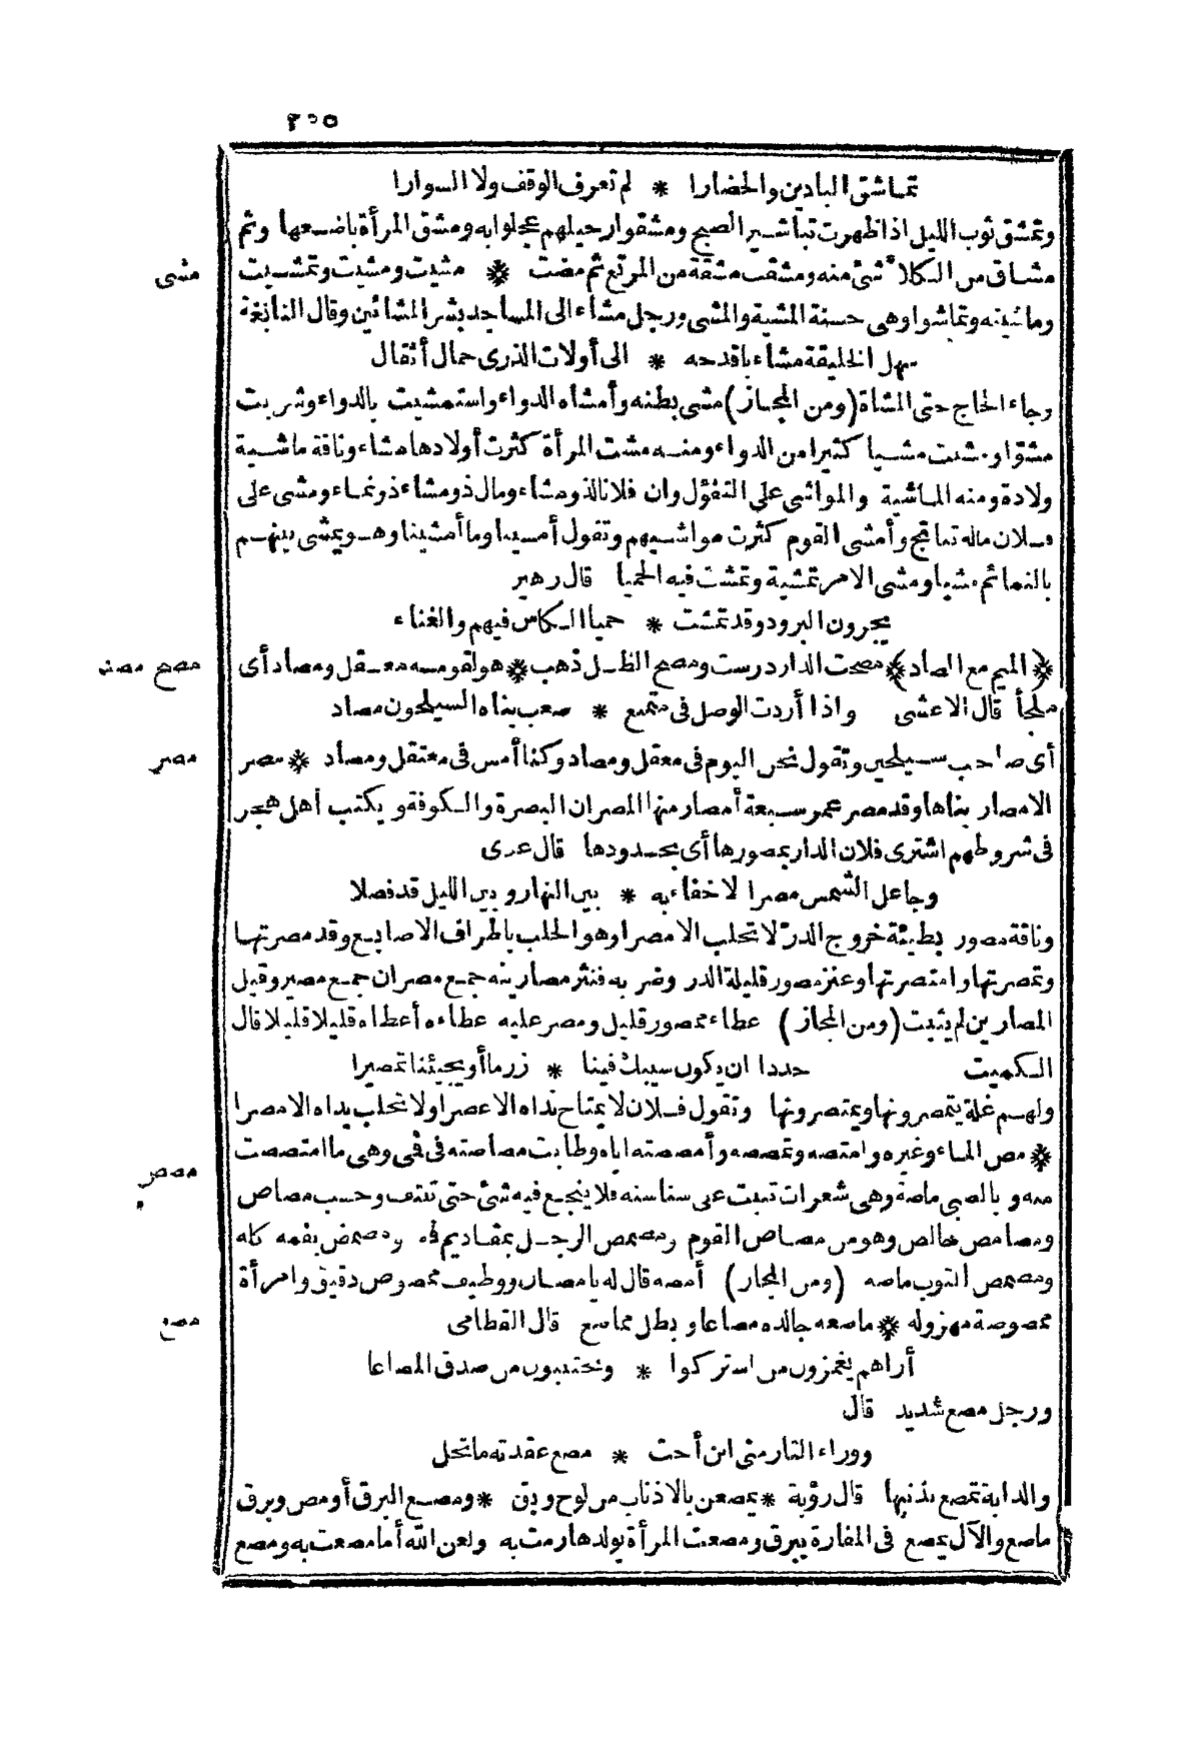 ٢٥٥
تماشق البادين والحضارا * لم تعرف الوقف ولا السوارا
وتمشق ثوب الليل اذا ظهرت تباشير الصبح ومشقوا رحيلهم عجلوا به ومشق المرأة باضعها وثم
مشاق من الكلا شئ منه ومشقت مشقة من المرتع ثم مضت * مشيت ومشيت وتمشيت
مشى
وماشيته وتماشوا وهى حسنة المشية والمشى ورجل مشاء الى المساجد بشر المشائين وقال النابغة
سهل الخليقة مشاء باقدحه * الى أولات الذرى حمال أثقال
وجاء الحاج حتى المشاة (ومن المجاز) مشى بطنه وأمشاه الدواء واستمشيت بالدواء وشربت
مشوّا ومشيت مشيا كثيرا من الدواء ومنه مشت المرأة كثرت أولادها مشاء وناقة ماشية
ولادة ومنه الماشية والمواشى على التفؤل وان فلانا لذو مشاء ومال ذو مشاء ذو نماء ومشى على
فلان ماله تناتج وأمشى القوم كثرت مواشيهم وتقول أمسينا وما أمشينا وهو يمشى بينهم
بالنمائم مشيا ومشى الامر تمشية وتمشت فيه الحميا قال زهير
يجرون البرود وقد تمشت * حميا الكاس فيهم والغناء
﴿الميم مع الصاد﴾ مصحت الدار درست ومصح الظل ذهب * هو لقومه معقل ومصاد أى
مصح مصد
ملجأ قال الاعشى واذا أردت الوصل فى متمنع * صعب بناه السيلحون مصاد
أى صاحب سيلحين وتقول نحن اليوم فى معقل ومصاد وكنا أمس فى معتقل ومصاد * مصر
مصر
الامصار بناها وقد مصر عمر سبعة أمصار منها المصران البصرة والكوفة ويكتب أهل هجر
فى شروطهم اشترى فلان الدار بمصورها أى بحدودها قال عدى
وجاعل الشمس مصرا لا خفاء به * بين النهار وبين الليل قد فصلا
وناقة مصور بطيئة خروج الدرّ لا تحلب الا مصرا وهو الحلب باطراف الاصابع وقد مصرتها
وتمصرتها وامتصرتها وعنز مصور قليلة الدر وضربه فنثر مصارينه جمع مصران جمع مصير وقيل
المصارين لم يثبت (ومن المجاز) عطاء ممصور قليل ومصر عليه عطاءه أعطاه قليلا قليلا قال
الكميت حددا ان يكون سيبك فينا * زرما أو يجيئنا تمصيرا
ولهم غلة يتمصرونها ويمتصرونها وتقول فلان لا يمتاح نداه الا عصرا ولا تحلب يداه الا مصرا
* مص الماء وغيره وامتصه وتمصصه وأمصصته اياه وطابت مصاصته فى فمى وهى ما امتصصت
مصص
منه وبالصبى ماصة وهى شعرات تنبت على سناسنه فلا ينجع فيه شئ حتى تنتف وحسب مصاص
ومصامص خالص وهو من مصاص القوم ومصمص الرجل بمقاديم فيه ومضمض بفمه كله
ومصمص الثوب ماصه (ومن المجاز) أمصه قال له يا مصان ووظيف ممصوص دقيق وامرأة
ممصوصة مهزولة * ماصعه جالده مصاعا وبطل مماصع قال القطامى
مصع
أراهم يغمزون من استركوا * ويجتنبون من صدق المصاعا
ورجل مصع شديد قال
ووراء الثار منى ابن أخت * مصع عقدته ما تحل
والدابة تمصع بذنبها قال رؤبة * يمصعن بالاذناب من لوح وبق * ومصع البرق أومض وبرق
ماصع والآل يمصع فى المفازة يبرق ومصعت المرأة بولدها رمت به ولعن الله أما مصعت به ومصع